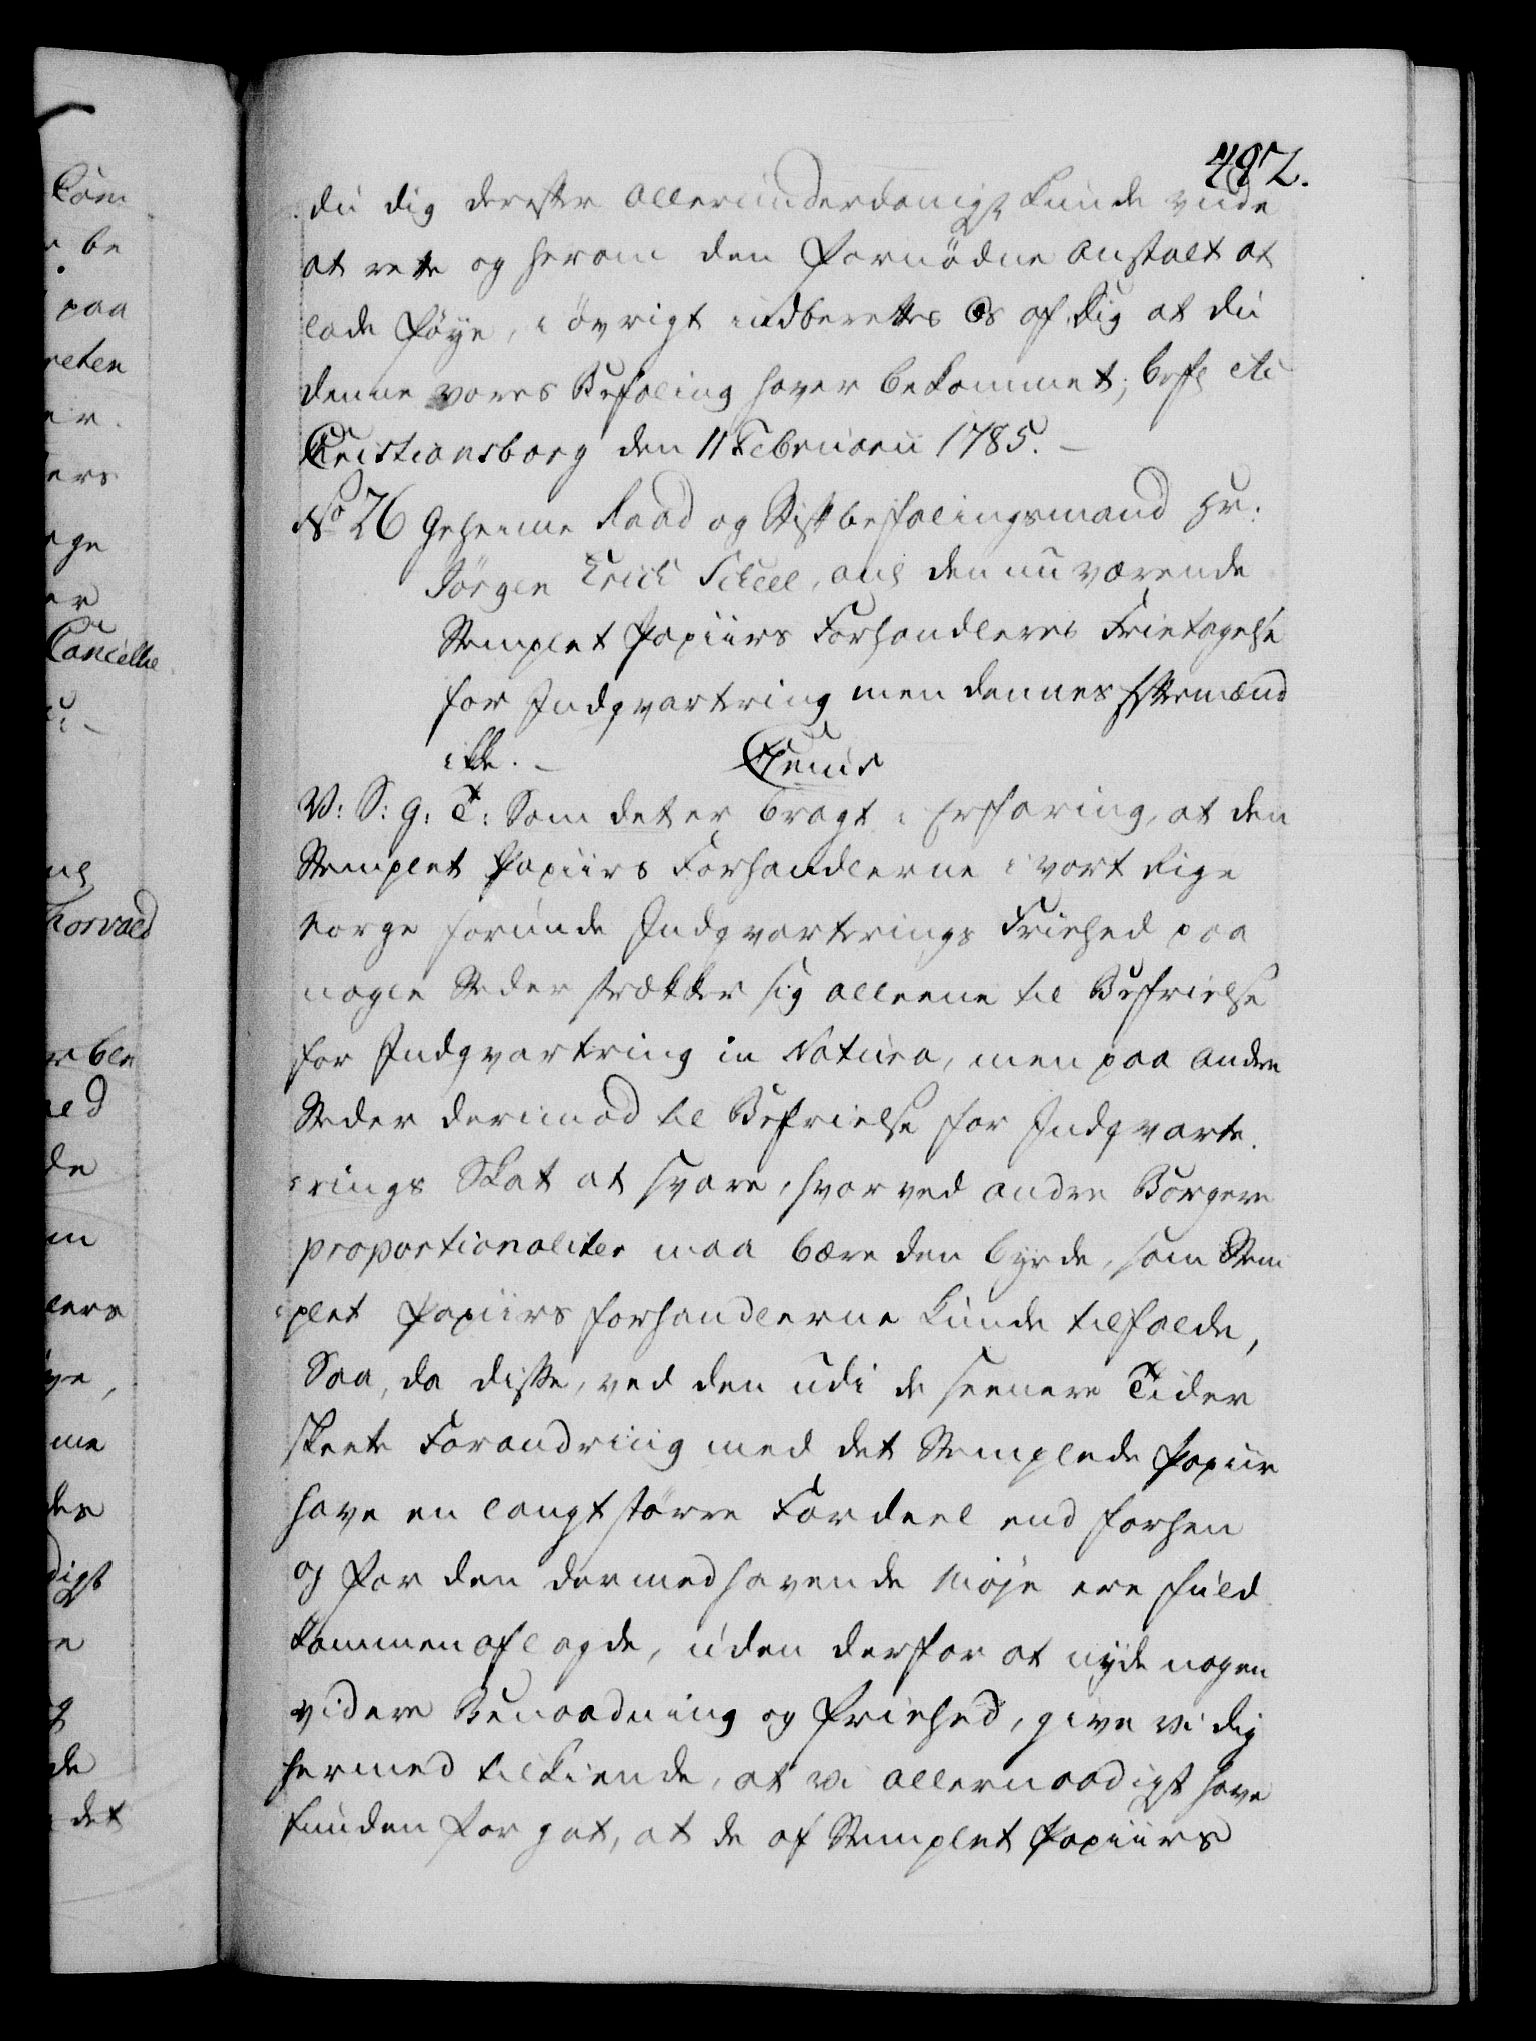 482.
du dig derefter allerunderdanigst kunde vide
at rette og herom den fornødne anstalt at
lade føye, i øvrigt indberettes Os af Dig at du
denne vores Befaling haver bekommet; befl etc
Christiansborg den 11 Februarii 1785. –
No 26 Geheime Raad og Stiftbefalingsmand Hr:
Jørgen Erich Scheel, ang den nu værende
Stemplet Papiirs Forhandleres Frietagelse
for Indqvartering men dennes Eftermænd
ikke. –
Chr: 7mus
V: S: G: T: Som det er bragt i Erfaring, at den
Stemplet Papiirs Forhandlerne i vort Rige
Norge forunde Indqvarterings Friehed paa
nogle Steder strækker sig alleene til Befrielse
for Indqvartring in Natura, men paa andre
Steder derimod til Befrielse for Indqvarte
rings Skat at svare, hvorved andre Borgere
proportionaliter maa bære den byrde, som Stem
plet Papiirs forhandlerne kunde tilfalde,
Saa, da disse, ved den udi de seenere Tider
skeete Forandring med det Stemplede Papiir
have en langt større Fordeel end forhen
og for den dermed havende Møje ere fuld
kommen aflagde, uden derfor at nyde nogen
videre Benaadning og friehed, give vi dig
hermed tilkiende, at vi allernaadigst have
funden for got, at de af Stemplet Papiirs